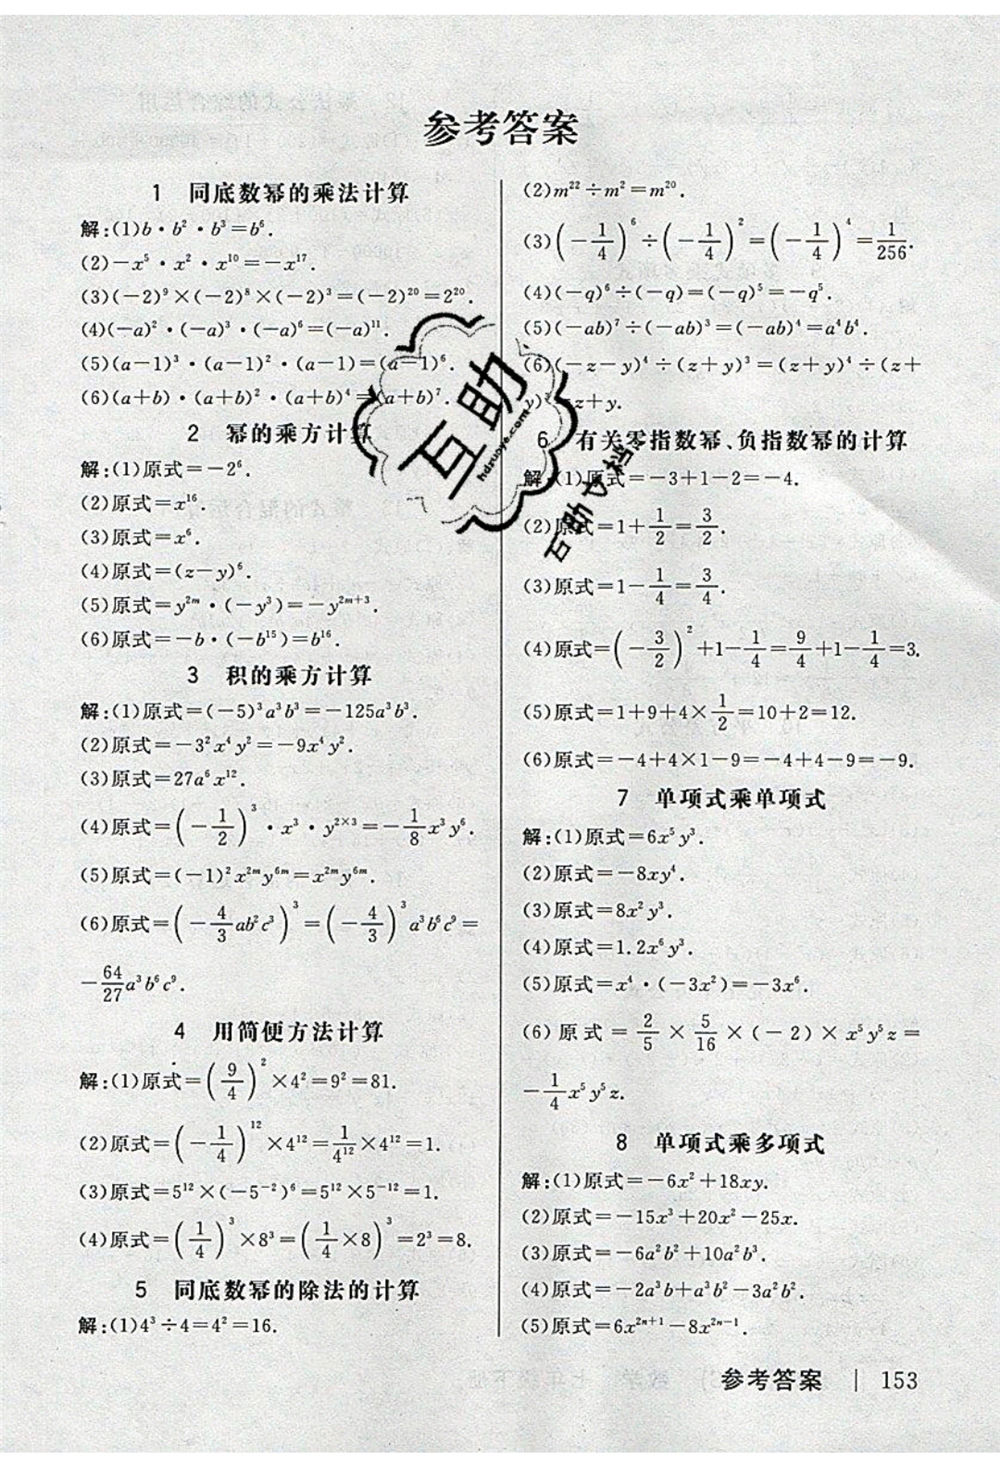 参考答案
1 同底数幂的乘法计算
解:(1)b·b²·b³=b⁶.
(2)-x⁵·x²·x¹⁰=-x¹⁷.
(3)(-2)⁹×(-2)⁸×(-2)³=(-2)²⁰=2²⁰.
(4)(-a)²·(-a)³·(-a)⁶=(-a)¹¹.
(5)(a-1)³·(a-1)²·(a-1)=(a-1)⁶.
(6)(a+b)·(a+b)²·(a+b)⁴=(a+b)⁷.
2 幂的乘方计算
解:(1)原式=-2⁶.
(2)原式=x¹⁶.
(3)原式=x⁶.
(4)原式=(z-y)⁶.
(5)原式=y²ᵐ·(-y³)=-y²ᵐ⁺³.
(6)原式=-b·(-b¹⁵)=b¹⁶.
3 积的乘方计算
解:(1)原式=(-5)³a³b³=-125a³b³.
(2)原式=-3²x⁴y²=-9x⁴y².
(3)原式=27a⁶x¹².
(4)原式=(-1/2)³·x³·y²ˣ³=-1/8x³y⁶.
(5)原式=(-1)²x²ᵐy⁶ᵐ=x²ᵐy⁶ᵐ.
(6)原式=(-4/3ab²c³)³=(-4/3)³a³b⁶c⁹=
-64/27a³b⁶c⁹.
4 用简便方法计算
解:(1)原式=(9/4)²×4²=9²=81.
(2)原式=(-1/4)¹²×4¹²=1/4¹²×4¹²=1.
(3)原式=5¹²×(-5⁻²)⁶=5¹²×5⁻¹²=1.
(4)原式=(1/4)³×8³=(1/4×8)³=2³=8.
5 同底数幂的除法的计算
解:(1)4³÷4=4²=16.
(2)m²²÷m²=m²⁰.
(3)(-1/4)⁶÷(-1/4)²=(-1/4)⁴=1/256.
(4)(-q)⁶÷(-q)=(-q)⁵=-q⁵.
(5)(-ab)⁷÷(-ab)³=(-ab)⁴=a⁴b⁴.
(6)(-z-y)⁴÷(z+y)³=(z+y)⁴÷(z+
y)³=z+y.
6 有关零指数幂、负指数幂的计算
解:(1)原式=-3+1-2=-4.
(2)原式=1+1/2=3/2.
(3)原式=1-1/4=3/4.
(4)原式=(-3/2)²+1-1/4=9/4+1-1/4=3.
(5)原式=1+9+4×1/2=10+2=12.
(6)原式=-4+4×1-9=-4+4-9=-9.
7 单项式乘单项式
解:(1)原式=6x⁵y³.
(2)原式=-8xy⁴.
(3)原式=8x²y³.
(4)原式=1.2x⁶y³.
(5)原式=x⁴·(-3x²)=-3x⁶.
(6)原式=2/5×5/16×(-2)×x⁵y⁵z=
-1/4x⁵y⁵z.
8 单项式乘多项式
解:(1)原式=-6x²+18xy.
(2)原式=-15x³+20x²-25x.
(3)原式=-6a²b²+10a²b³.
(4)原式=-2a³b+a³b²-3a²b².
(5)原式=6x²ⁿ⁺¹-8x²ⁿ⁻¹.
互助
hdzuoye.com
互助文档
参考答案 | 153